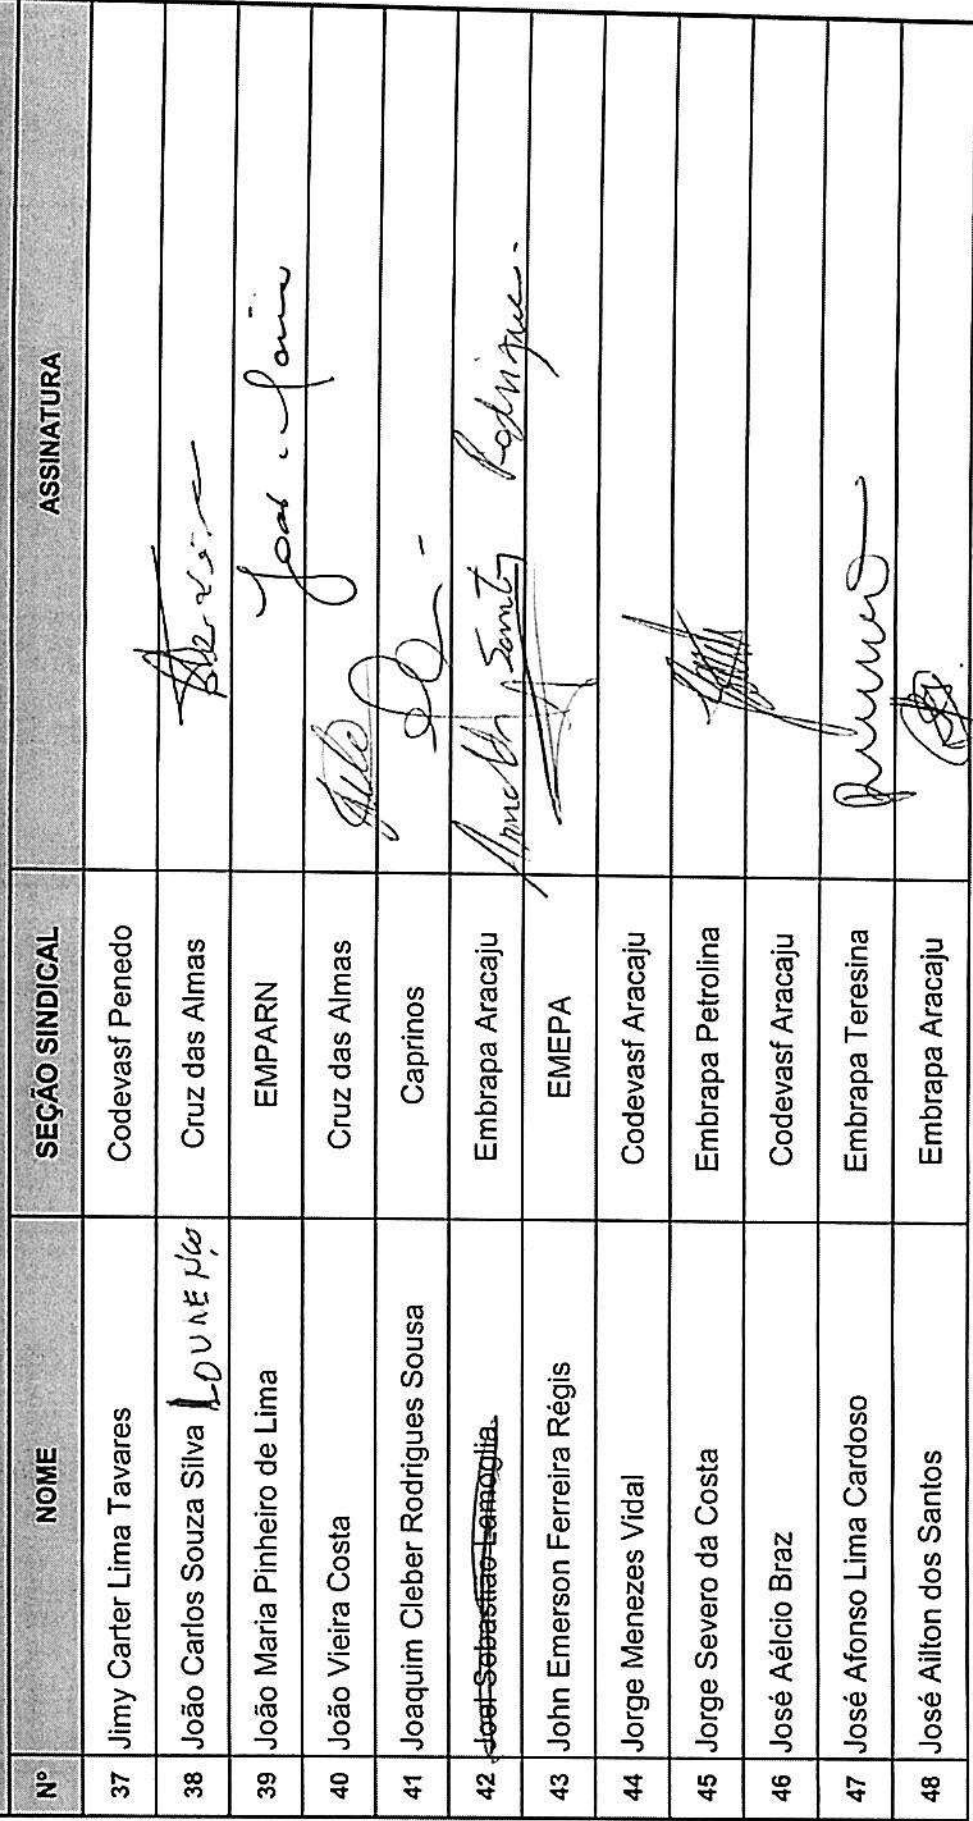 Nº NOME SEÇÃO SINDICAL ASSINATURA
37 Jimy Carter Lima Tavares Codevasf Penedo
38 João Carlos Souza Silva LOURENÇO Cruz das Almas
39 João Maria Pinheiro de Lima EMPARN João Maria
40 João Vieira Costa Cruz das Almas
41 Joaquim Cleber Rodrigues Sousa Caprinos
42 Joel Sebastião Lamoglia Embrapa Aracaju Santos Rodrigues
43 John Emerson Ferreira Régis EMEPA
44 Jorge Menezes Vidal Codevasf Aracaju
45 Jorge Severo da Costa Embrapa Petrolina
46 José Aélcio Braz Codevasf Aracaju
47 José Afonso Lima Cardoso Embrapa Teresina
48 José Ailton dos Santos Embrapa Aracaju